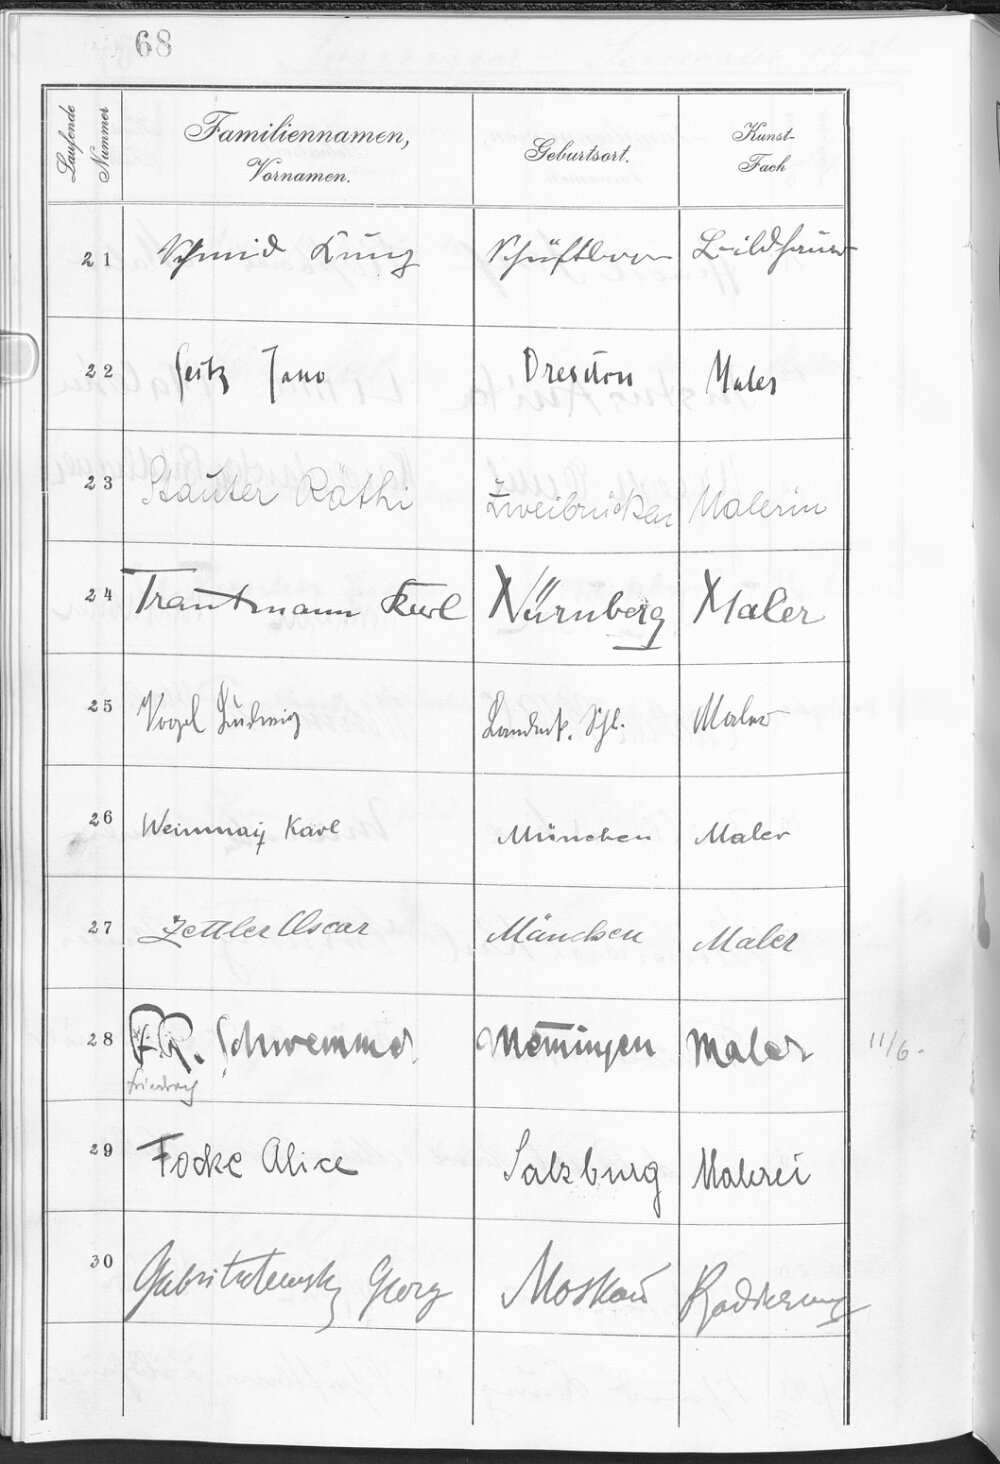 68
Laufende Nummer
Familiennamen,
Vornamen.
Geburtsort.
Kunst-
Fach
21 Schmid Kunz Bildhauer
22 Seitz Dresden Maler
23 Stauter Käthi Zweibrücken Malerin
24 Trautmann Karl Nürnberg Maler
25 Vogel Ludwig Maler
26 Weinmair Karl München Maler
27 Zettler Oscar München Maler
28 F.R. Schwemmer Memmingen Maler 11/6.
Friedrich
29 Focke Alice Salzburg Malerei
30 Georg Moskau Radierung